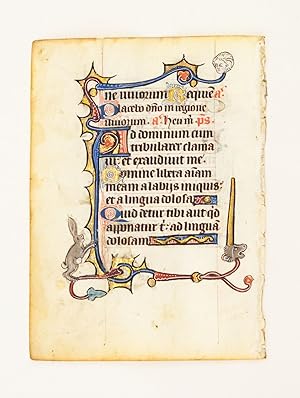 ne uiuorum Requie a᷑.
Placebo dño in regione
uiuorum. a᷑. Heu m̃. ps.
Ad dominum cum
tribularer clama
ui: et exaudiuit me.
Domine libera añam
meam a labijs iniquis:
et a lingua dolosa.
Quid detur tibi aut qd̃
apponatur t̃: ad linguã
dolosam